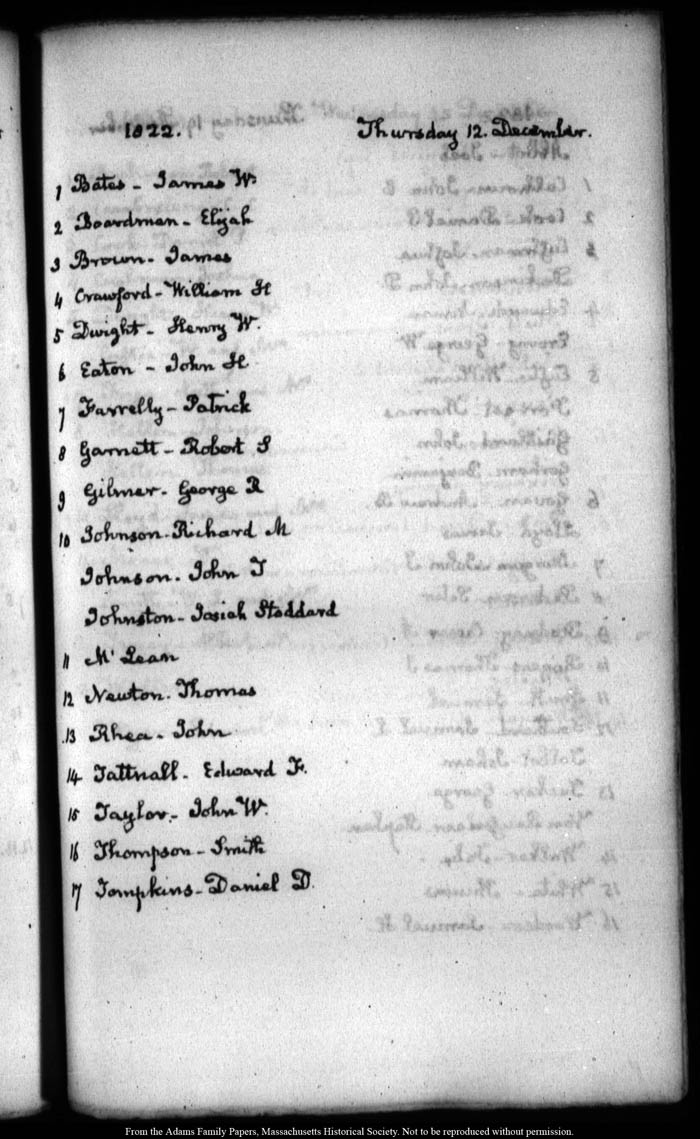 1822. Thursday 12. December.
1 Bates - James W.
2 Boardman - Elijah
3 Brown - James
4 Crawford - William H
5 Dwight - Henry W.
6 Eaton - John H
7 Farrelly - Patrick
8 Garnett - Robert S
9 Gilmer - George R
10 Johnson - Richard M
Johnson - John T
Johnston - Josiah Stoddard
11 Mc Lean
12 Newton. Thomas
13 Rhea - John
14 Tattnall - Edward F.
15 Taylor - John W.
16 Thompson - Smith
17 Tompkins - Daniel D.
From the Adams Family Papers, Massachusetts Historical Society. Not to be reproduced without permission.